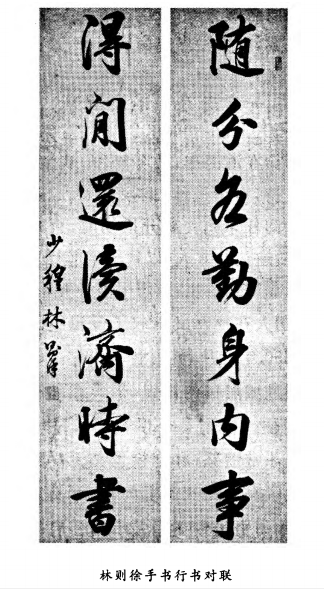 隨分各勤身內事
得閒還讀濟時書
少穆林則徐
林则徐手书行书对联